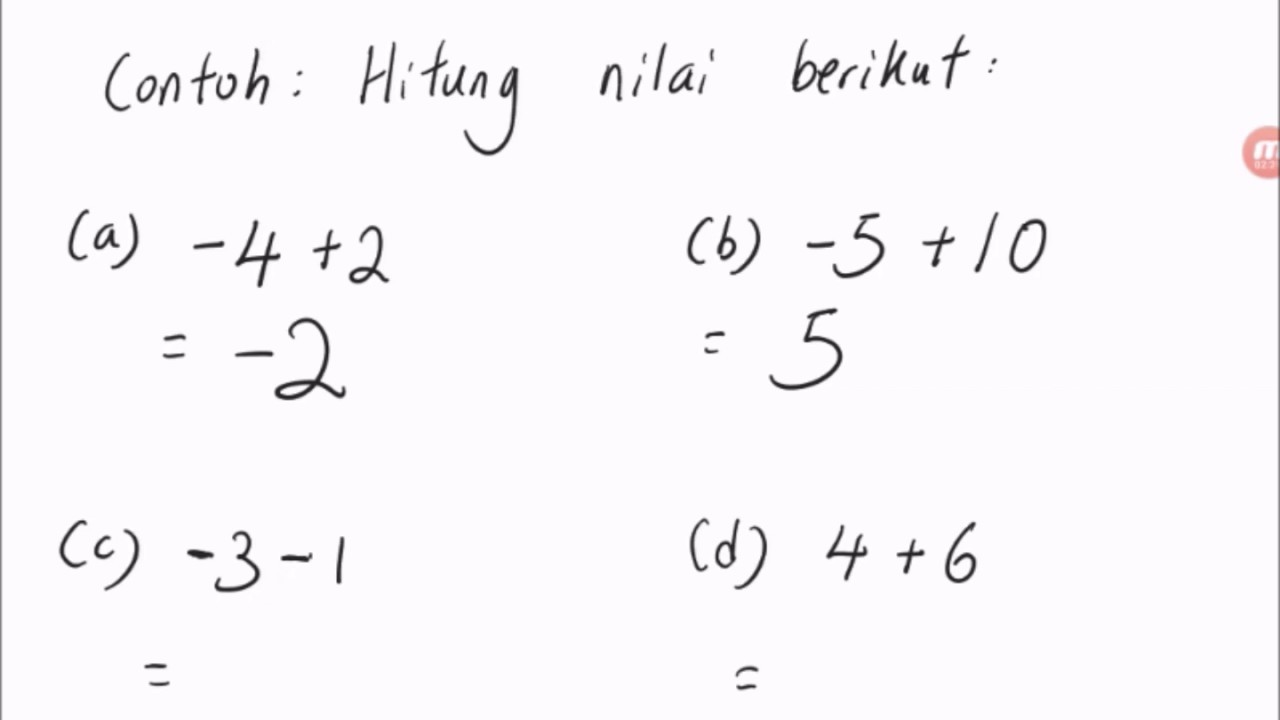 Contoh: Hitung nilai berikut:
(a) -4 +2
= -2
(b) -5 +10
= 5
(c) -3 - 1
=
(d) 4 + 6
=